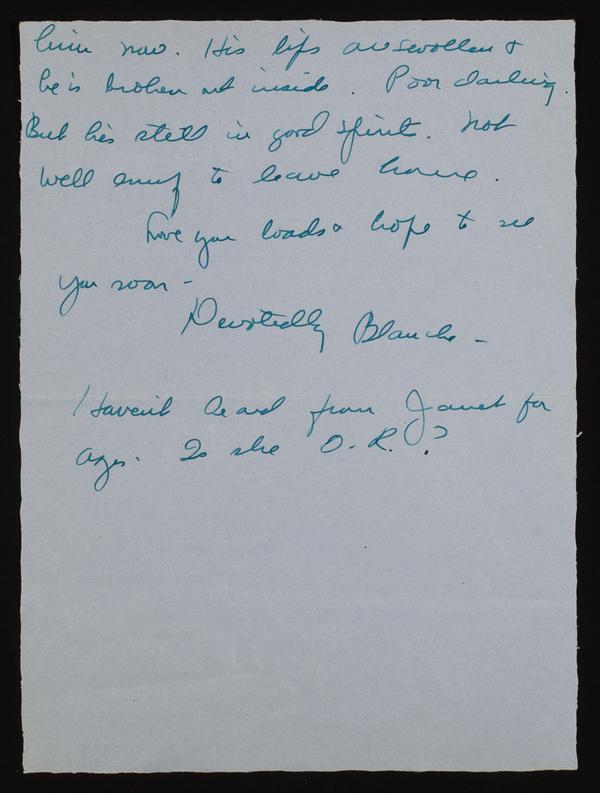 him now. His lips are swollen &
he is broken out inside. Poor darling.
But his still in good spirit. Not
well enuf to leave home.
Love you loads & hope to see
you soon -
Devotedly Blanche -
Haven't heard from Janet for
ages. Is she O.K.?